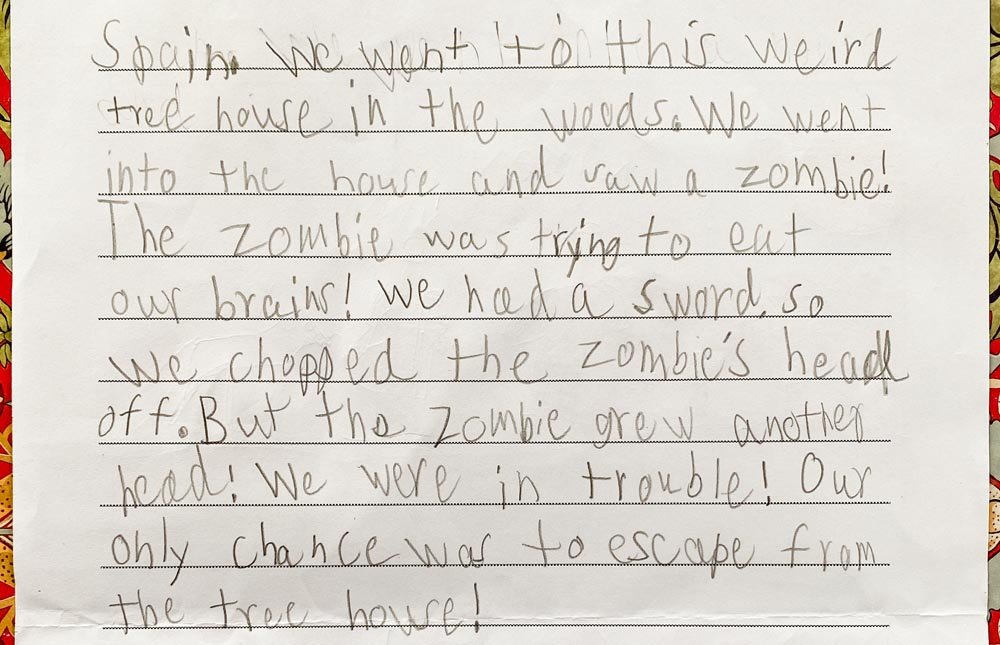 Spain. We went to this weird
tree house in the woods. We went
into the house and saw a zombie!
The zombie was trying to eat
our brains! We had a sword, so
we chopped the zombie's head
off. But the zombie grew another
head! We were in trouble! Our
only chance was to escape from
the tree house!